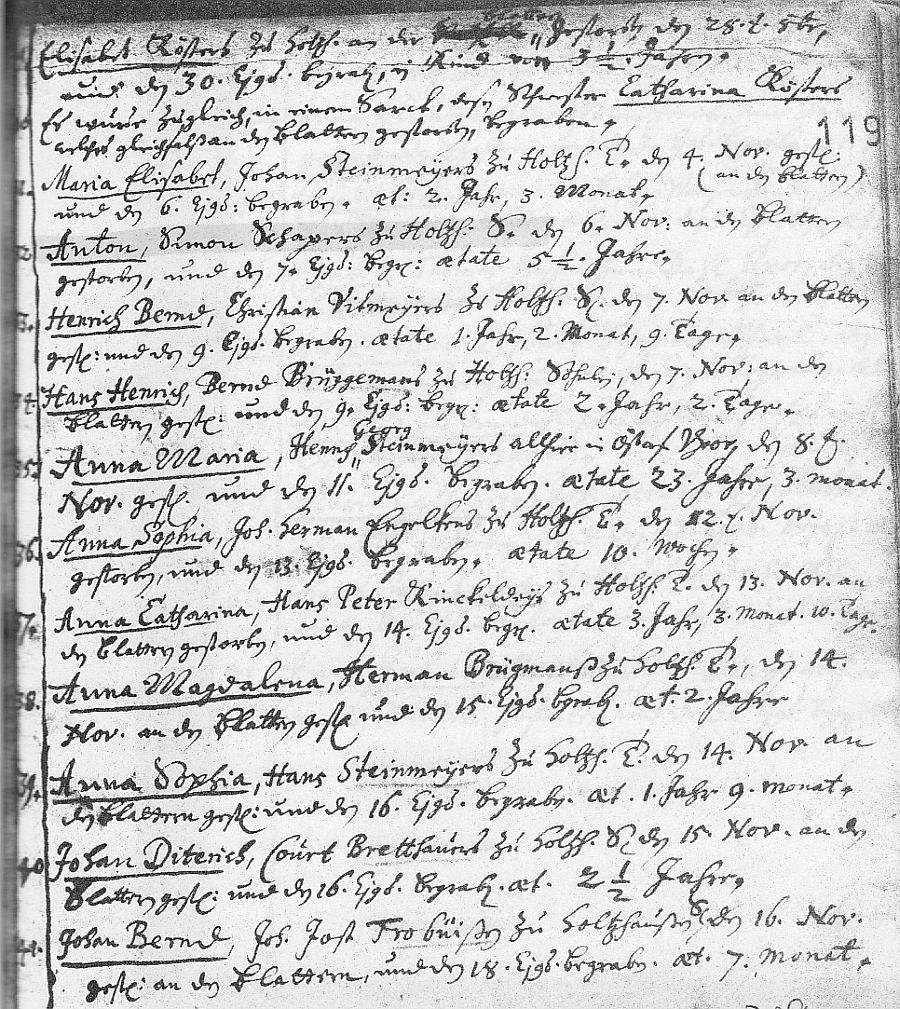 Elisabet Kösters zu Holtzh. an der Blattern gestorben den 28. t. 8br,
und den 30. Ejgs. begrab, ein Kind von 3½. Jahren.
Es wurde zugleich, in einem Sarck, desen Schwester Catharina Kösters
welches gleichfalß an den blattern gestorben, begraben.
119
Maria Elisabet, Johan Steinmeyers zu Holtzh. T. den 4. Nov. gest:
(an den blattern)
und den 6. Ejgs: begraben. æt: 2. Jahr, 3. Monat.
Anton, Simon Schapers zu Holtzh. S. den 6. Nov: an den blattern
gestorben, und den 7. Ejgs: begr: ætate 5½. Jahre.
33. Henrich Bernd, Christian Vitmeyers zu Holtzh. S. den 7. Nov. an den blattern
gest: und den 9. Ejgs. begraben. ætate 1. Jahr, 2. Monat, 9. Tage.
34. Hans Henrich, Bernd Brüggemans zu Holtzh: Sohn, den 7. Nov: an den
blattern gest: und den 9. Ejgs: begr: ætate 2. Jahr, 2. Tage.
35. Anna Maria, Henrich Georg Steinmeyers allhier in den 8. t.
Nov. gest. und den 11. Ejgs. begraben. ætate 23. Jahre, 3. monat.
36. Anna Sophia, Joh. Herman Engelkens zu Holtzh. T. den 12. t. Nov.
gestorben, und den 13. Ejgs. begraben. ætate 10. Wochen.
37. Anna Catharina, Hans Peter Rinckeldeys zu Holtzh. T. den 13. Nov. an
den blattern gestorben, und den 14. Ejgs. begr. ætate 3. Jahr, 3. Monat. 10. Tage.
38. Anna Magdalena, Herman Brügmanß zu Holtzh. T., den 14.
Nov. an den blattern gest. und den 15. Ejgs. begrab. æt. 2. Jahre
39. Anna Sophia, Hans Steinmeyers zu Holtzh. T. den 14. Nov. an
den blattern gest: und den 16. Ejgs. begraben. æt. 1. Jahr 9. monat.
40. Johan Diterich, Court Bretthauers zu Holtzh. S. den 15. Nov. an den
blattern gest: und den 16. Ejgs. begrab. æt. 2½ Jahre.
41. Johan Bernd, Joh. Jost Trobüißen zu Holtzhaußen S. den 16. Nov.
gest: an den blattern, und den 18. Ejgs. begraben. æt. 7. Monat.